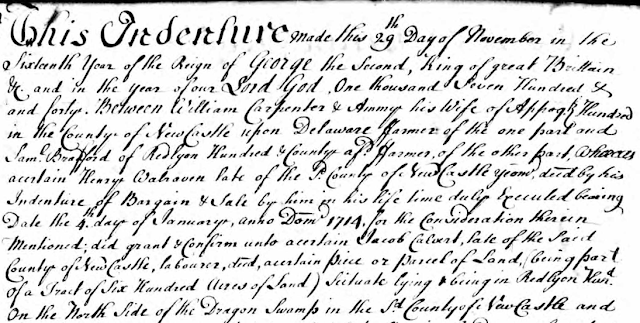 This Indenture made this 29th Day of November in the
Sixteenth Year of the Reign of George the Second, King of great Brittain
&c. and in the year of our Lord God, One thousand Seven Hundred &
and forty. Between William Carpenter & Ammy his Wife of Appoqk Hundred
in the County of New Castle upon Delaware Farmer of the one part and
Saml. Bradford of Redlyon Hundred & County afsd. Farmer, of the other part, Whereas
acertain Henry Walraven late of the Sd. County of New Castle Yeom. decd by his
Indenture of Bargain & Sale by him in his life time duly Executed bearing
Date the 4th day of January, anno Dom. 1714, for the Consideration therein
Mentioned; did grant & Confirm unto acertain Jacob Calvert, late of the Said
County of New Castle, labourer, decd, acertain piece or Parcel of Land, (being part
of a Tract of Six Hundred Acres of Land) Scituate lying & being in Redlyon Hund.
On the North Side of the Dragon Swamp in the Sd. County of New Castle and